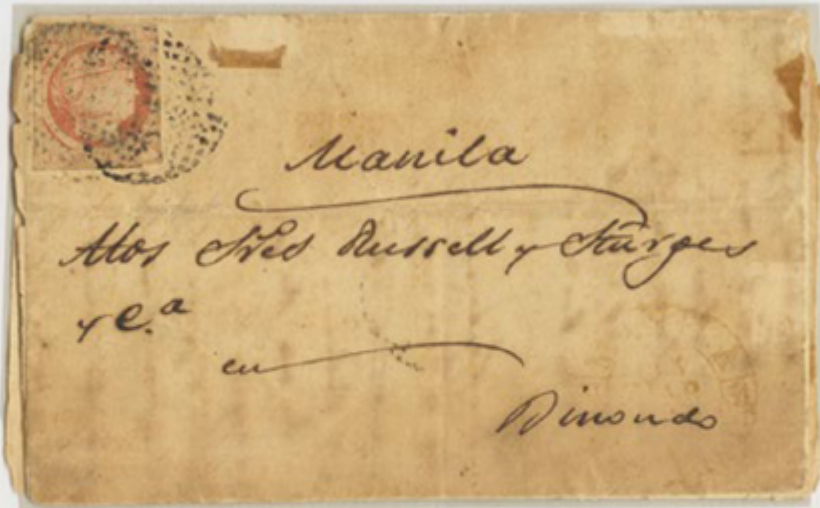 Manila
Sres Russell y Sturges
y C.ª
en
Binondo